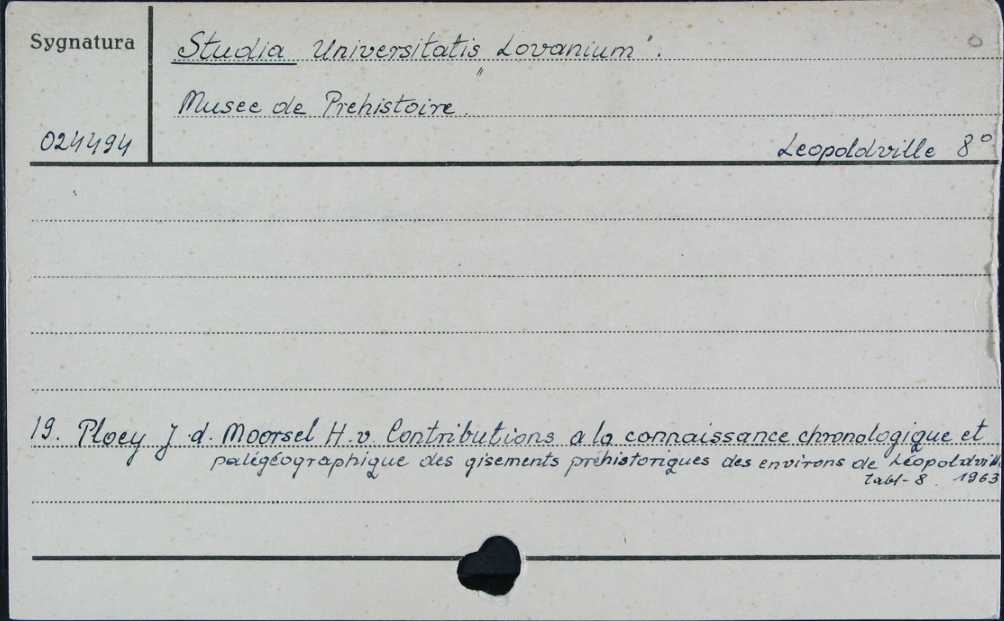 Sygnatura
Studia Universitatis „Lovanium".
Musee de Prehistoire.
024494
Leopoldville 8°
19. Ploey J. d. Moorsel H. v. Contributions a la connaissance chronologique et
palégéographique des gisements préhistoriques des environs de Léopoldvill
tabl. 8. 1963